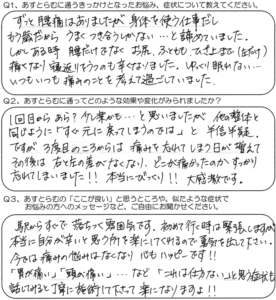 Q1、あすとらむに通うきっかけとなったお悩み、症状について教えてください。
ずっと腰痛はありましたが身体を使う仕事だし
もう歳だから うまくつき合うしかない…と諦めていました。
しかしある時 腰だけでなく お尻、ふともも、ひざ上まで(左だけ)
痛くなり寝返りをうつのも辛くなりました。ゆっくり眠れない…
いつもいつも痛みのことを考えて過ごしていました。
Q2、あすとらむに通ってどのような効果や変化がみられましたか?
1回目から あら?イイ感かも…と思いましたが 他の整体と
同じように「すぐ元に戻ってしまうのでは」と 半信半疑。
ですが 3度目のころからは 痛みを忘れてしまう日が増えて
その後は 右と左の差がなくなり、どこが痛かったのか すっかり
忘れてしまいました!!本当にびっくり!!大感激です。
Q3、あすとらむの「ここが良い」と思うところや、似たような症状で
お悩みの方へのメッセージなど、ご自由にお聞かせください。
駅からすぐで 落ちつく雰囲気です。初めて行く時は緊張しますが
本当に自分が辛いと思う所を楽にしてくれるので勇気を出して下さい。
今では痛みの悩みはなくなり 心もハッピーです!!
「肩が痛い」「頭が痛い」…など「これは仕方ない」と思う症状も
話してみると丁寧に施術して下さって楽になりますよ!!